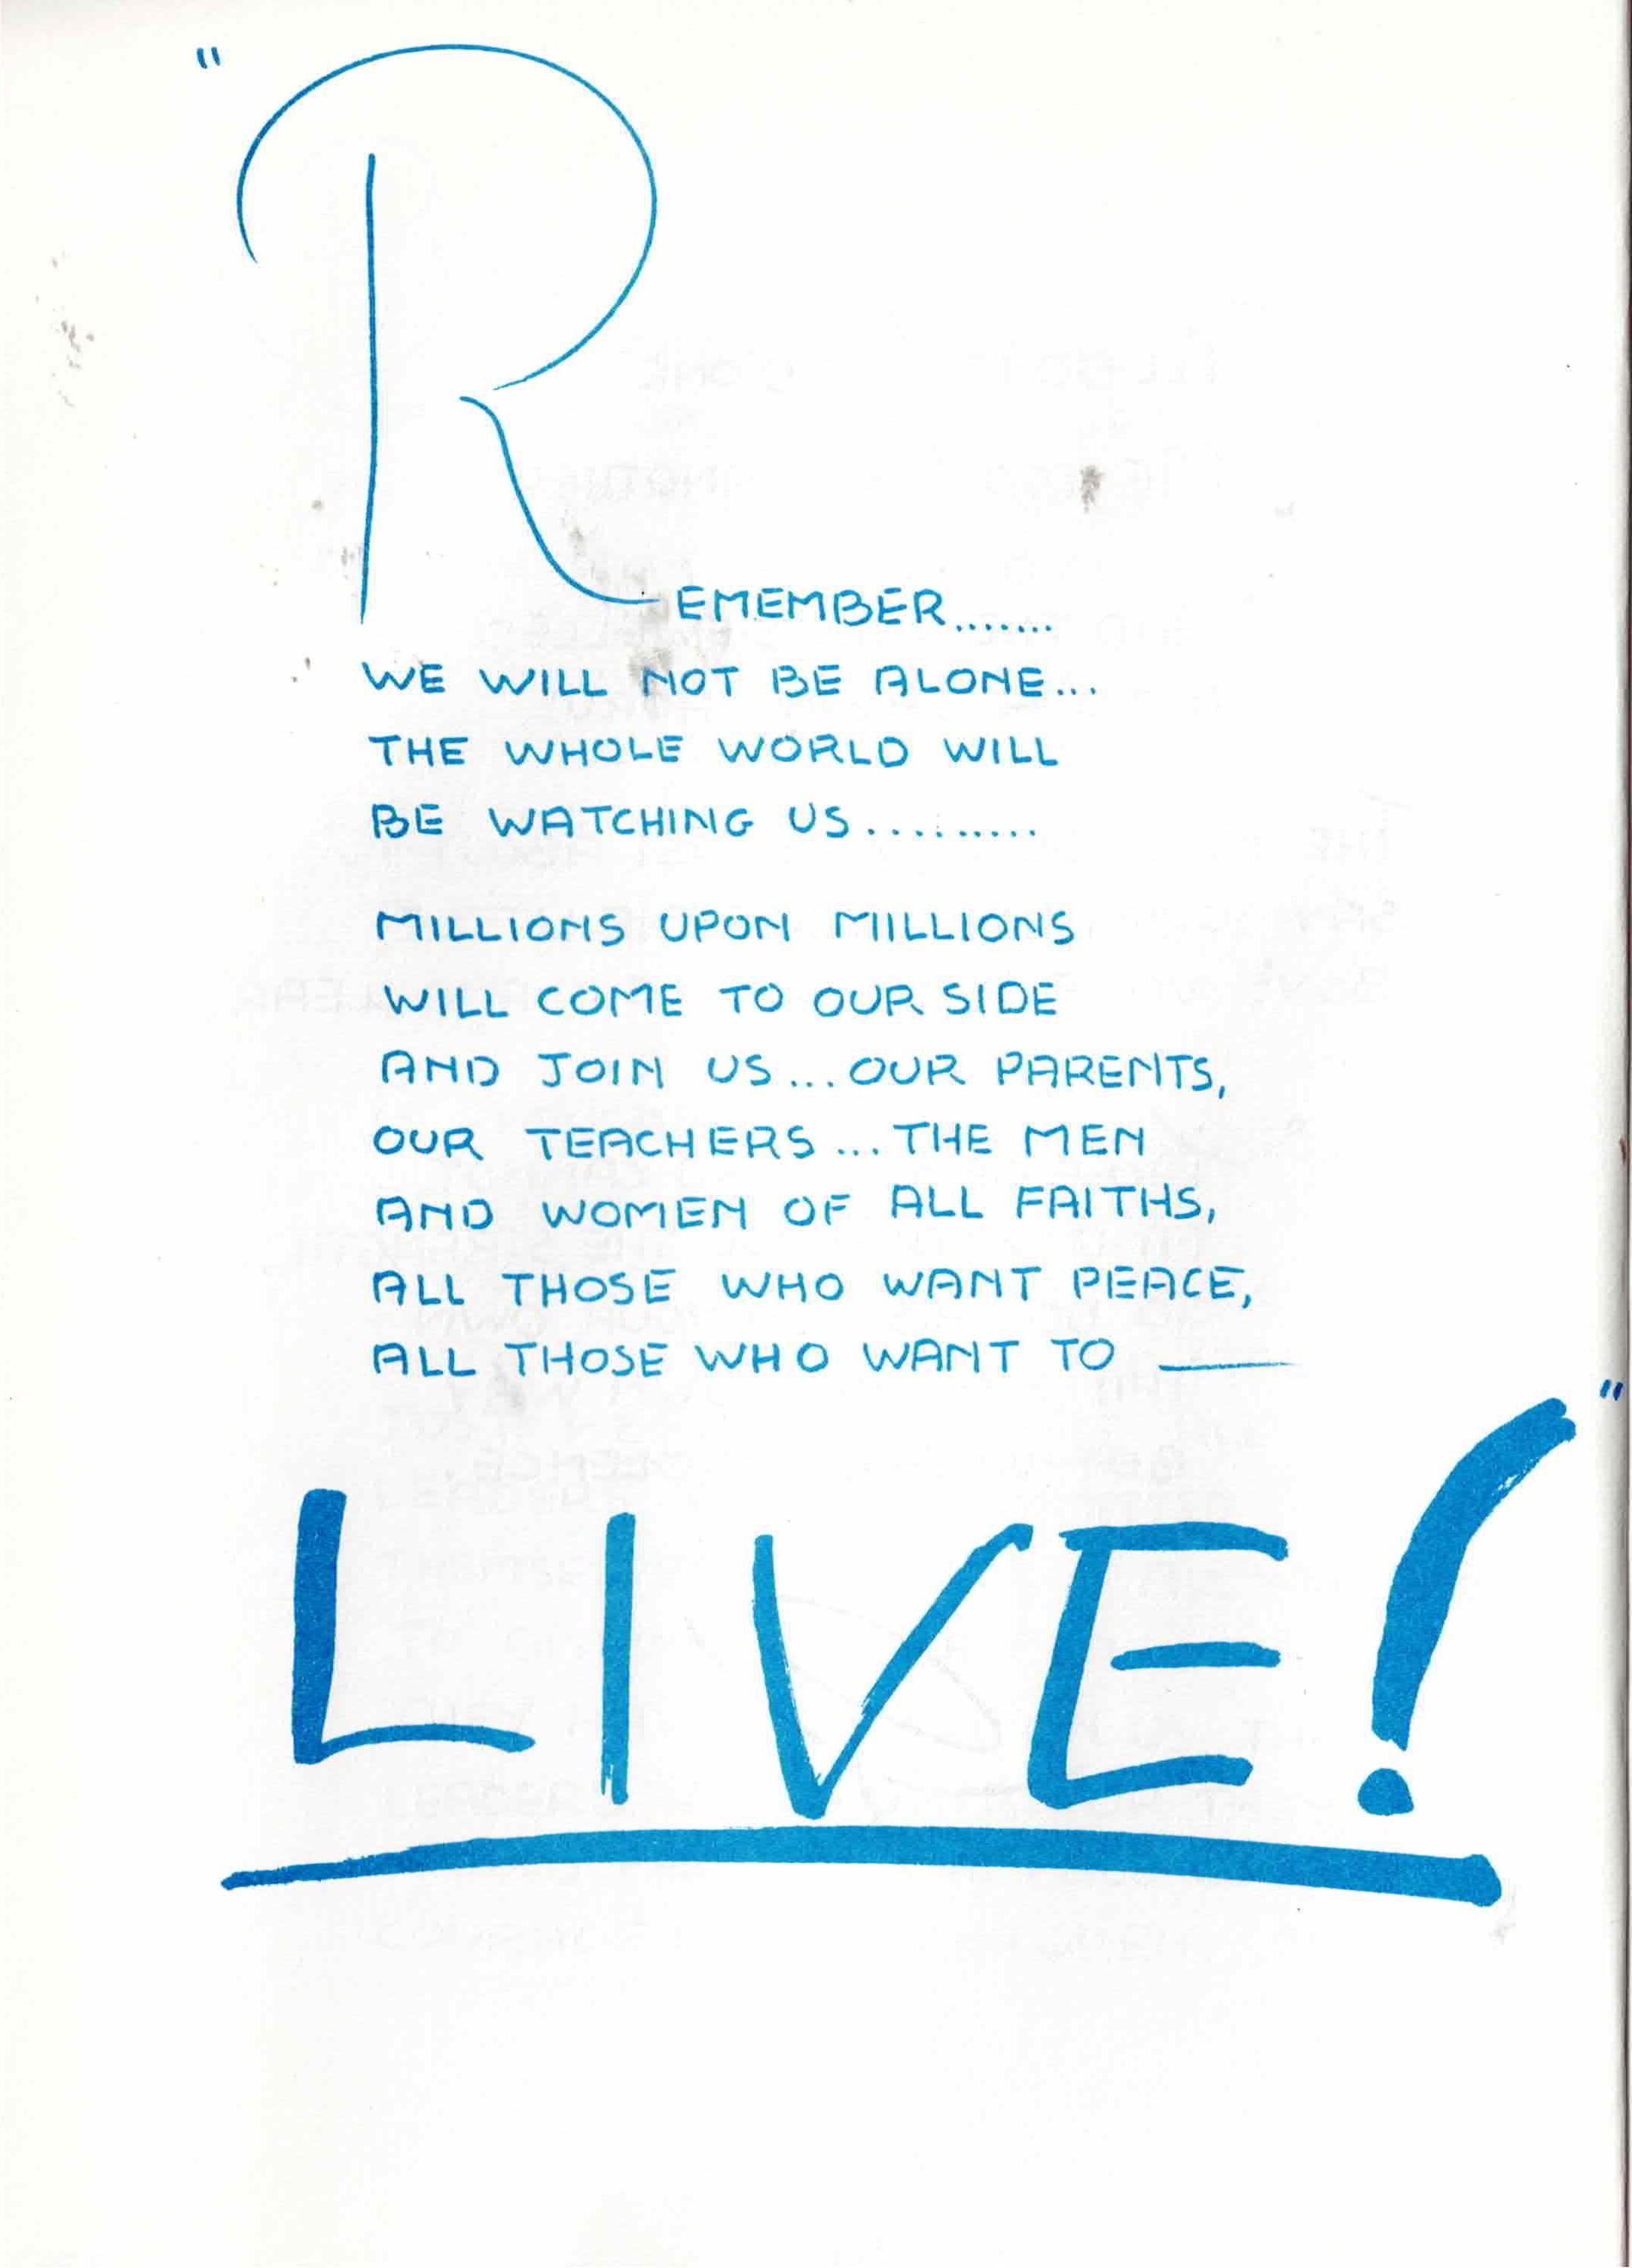 "REMEMBER.......
WE WILL NOT BE ALONE...
THE WHOLE WORLD WILL
BE WATCHING US.........
MILLIONS UPON MILLIONS
WILL COME TO OUR SIDE
AND JOIN US...OUR PARENTS,
OUR TEACHERS...THE MEN
AND WOMEN OF ALL FAITHS,
ALL THOSE WHO WANT PEACE,
ALL THOSE WHO WANT TO ——
LIVE!"